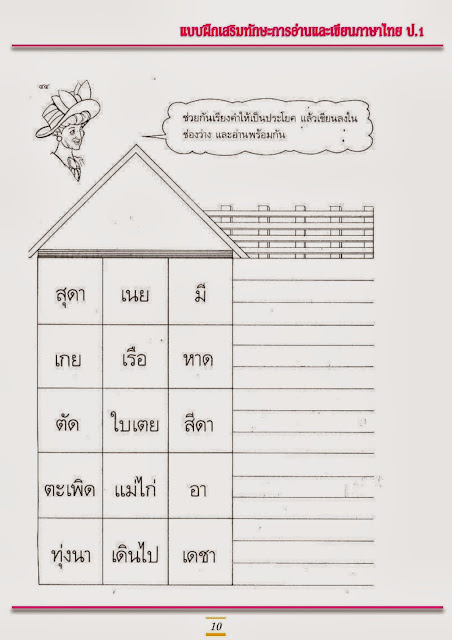 แบบฝึกเสริมทักษะการอ่านและเขียนภาษาไทย ป.1
๔๔
ช่วยกันเรียงคำให้เป็นประโยค แล้วเขียนลงใน
ช่องว่าง และอ่านพร้อมกัน
สุดา เนย มี
เกย เรือ หาด
ตัด ใบเตย สีดา
ตะเพิด แม่ไก่ อา
ทุ่งนา เดินไป เดชา
10